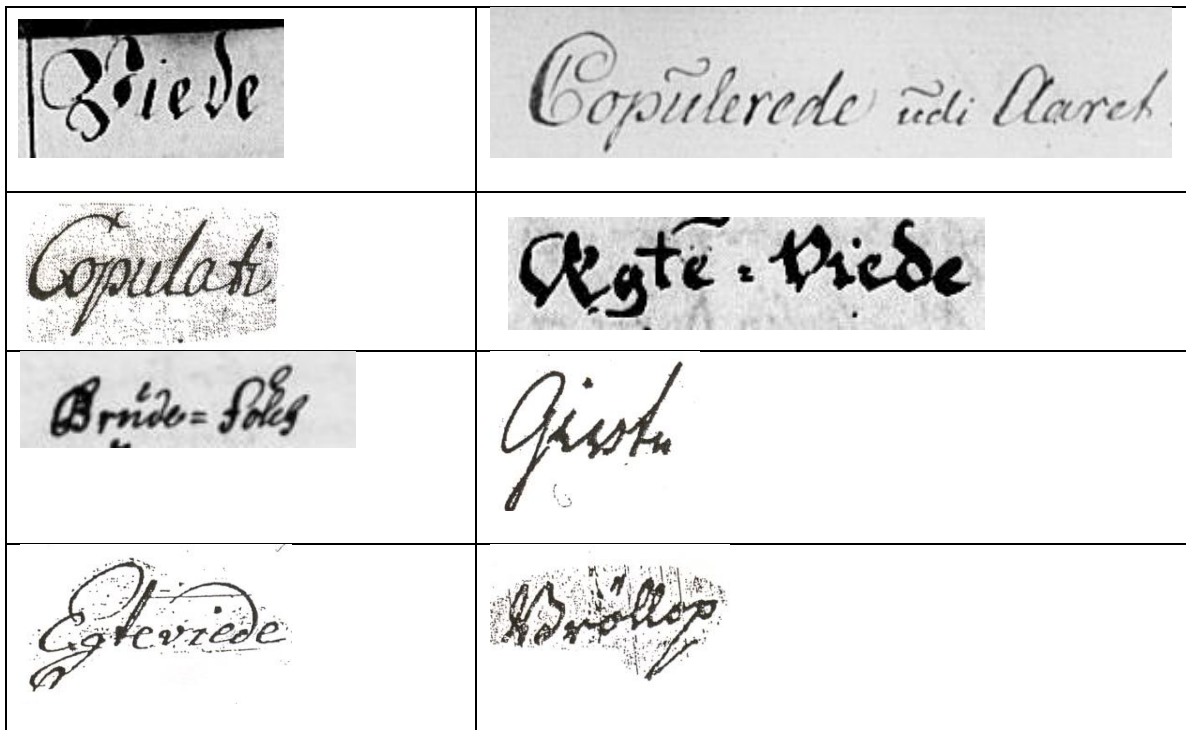 Viede
Copulerede udi Aaret
Copulati
Ægte = Viede
Brude = folch
Giwte
Egteviede
Bröllop